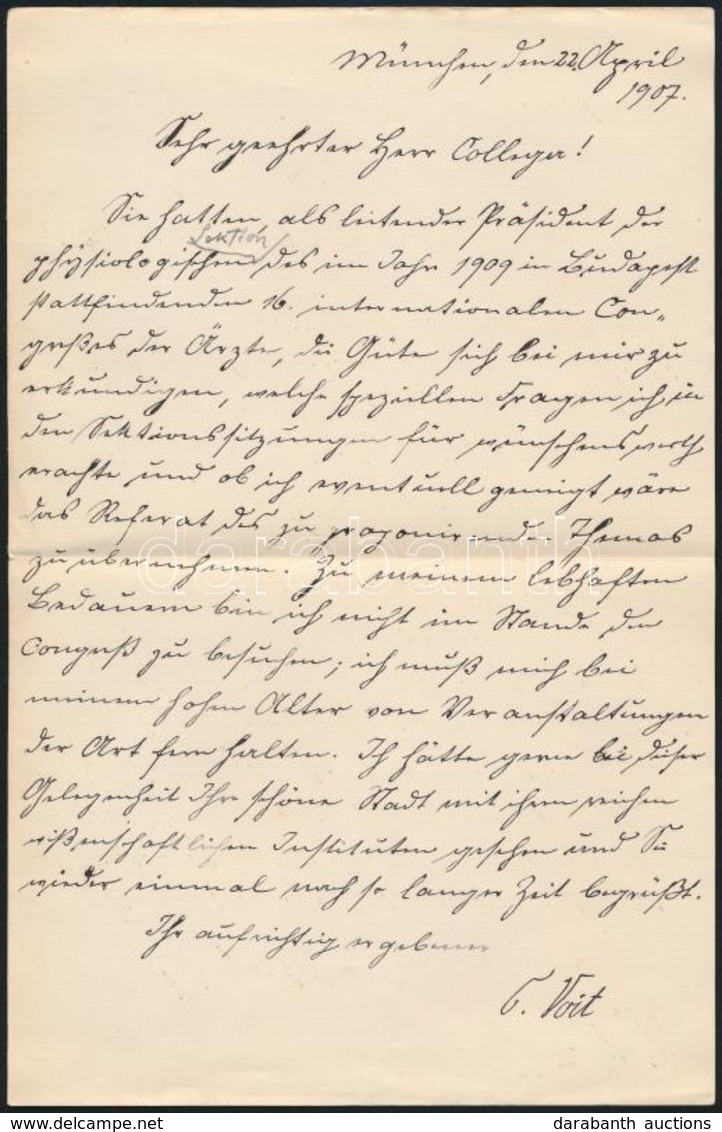 München, den 22. April
1907.
Sehr geehrter Herr Collega!
Sie hatten, als leitender Präsident der
Sektion
physiologischen des im Jahr 1909 in Budapest
stattfindenden 16. internationalen Con-
greßes der Ärzte, die Güte sich bei mir zu
erkundigen, welche speziellen Fragen ich in
den Sektionssitzungen für wünschenswerth
erachte und ob ich eventuell geneigt wäre
das Referat des zu proponirenden Themas
zu übernehmen. Zu meinem lebhaften
Bedauern bin ich nicht im Stande den
Congreß zu besuchen; ich muß mich bei
meinem hohen Alter von Veranstaltungen
der Art fern halten. Ich hätte gerne bei dieser
Gelegenheit Ihre schöne Stadt mit ihren reichen
wißenschaftlichen Instituten gesehen und Sie
wieder einmal nach so langer Zeit begrüßt.
Ihr aufrichtig ergebener
C. Voit
darabanth
darabanth auctions